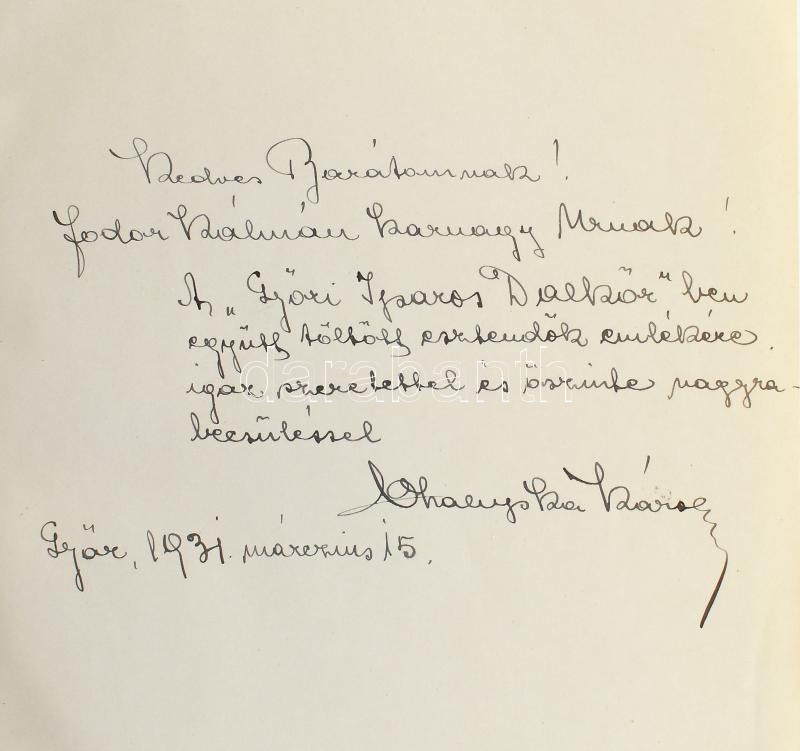 Kedves Barátomnak!
Fodor Kálmán karnagy Urnak!
A „Győri Iparos Dalkör" ben
együtt töltött esztendők emlékére
igaz szeretettel és őszinte nagyra-
becsüléssel
Károly
Győr, 1931. márczius 15.
darabanth